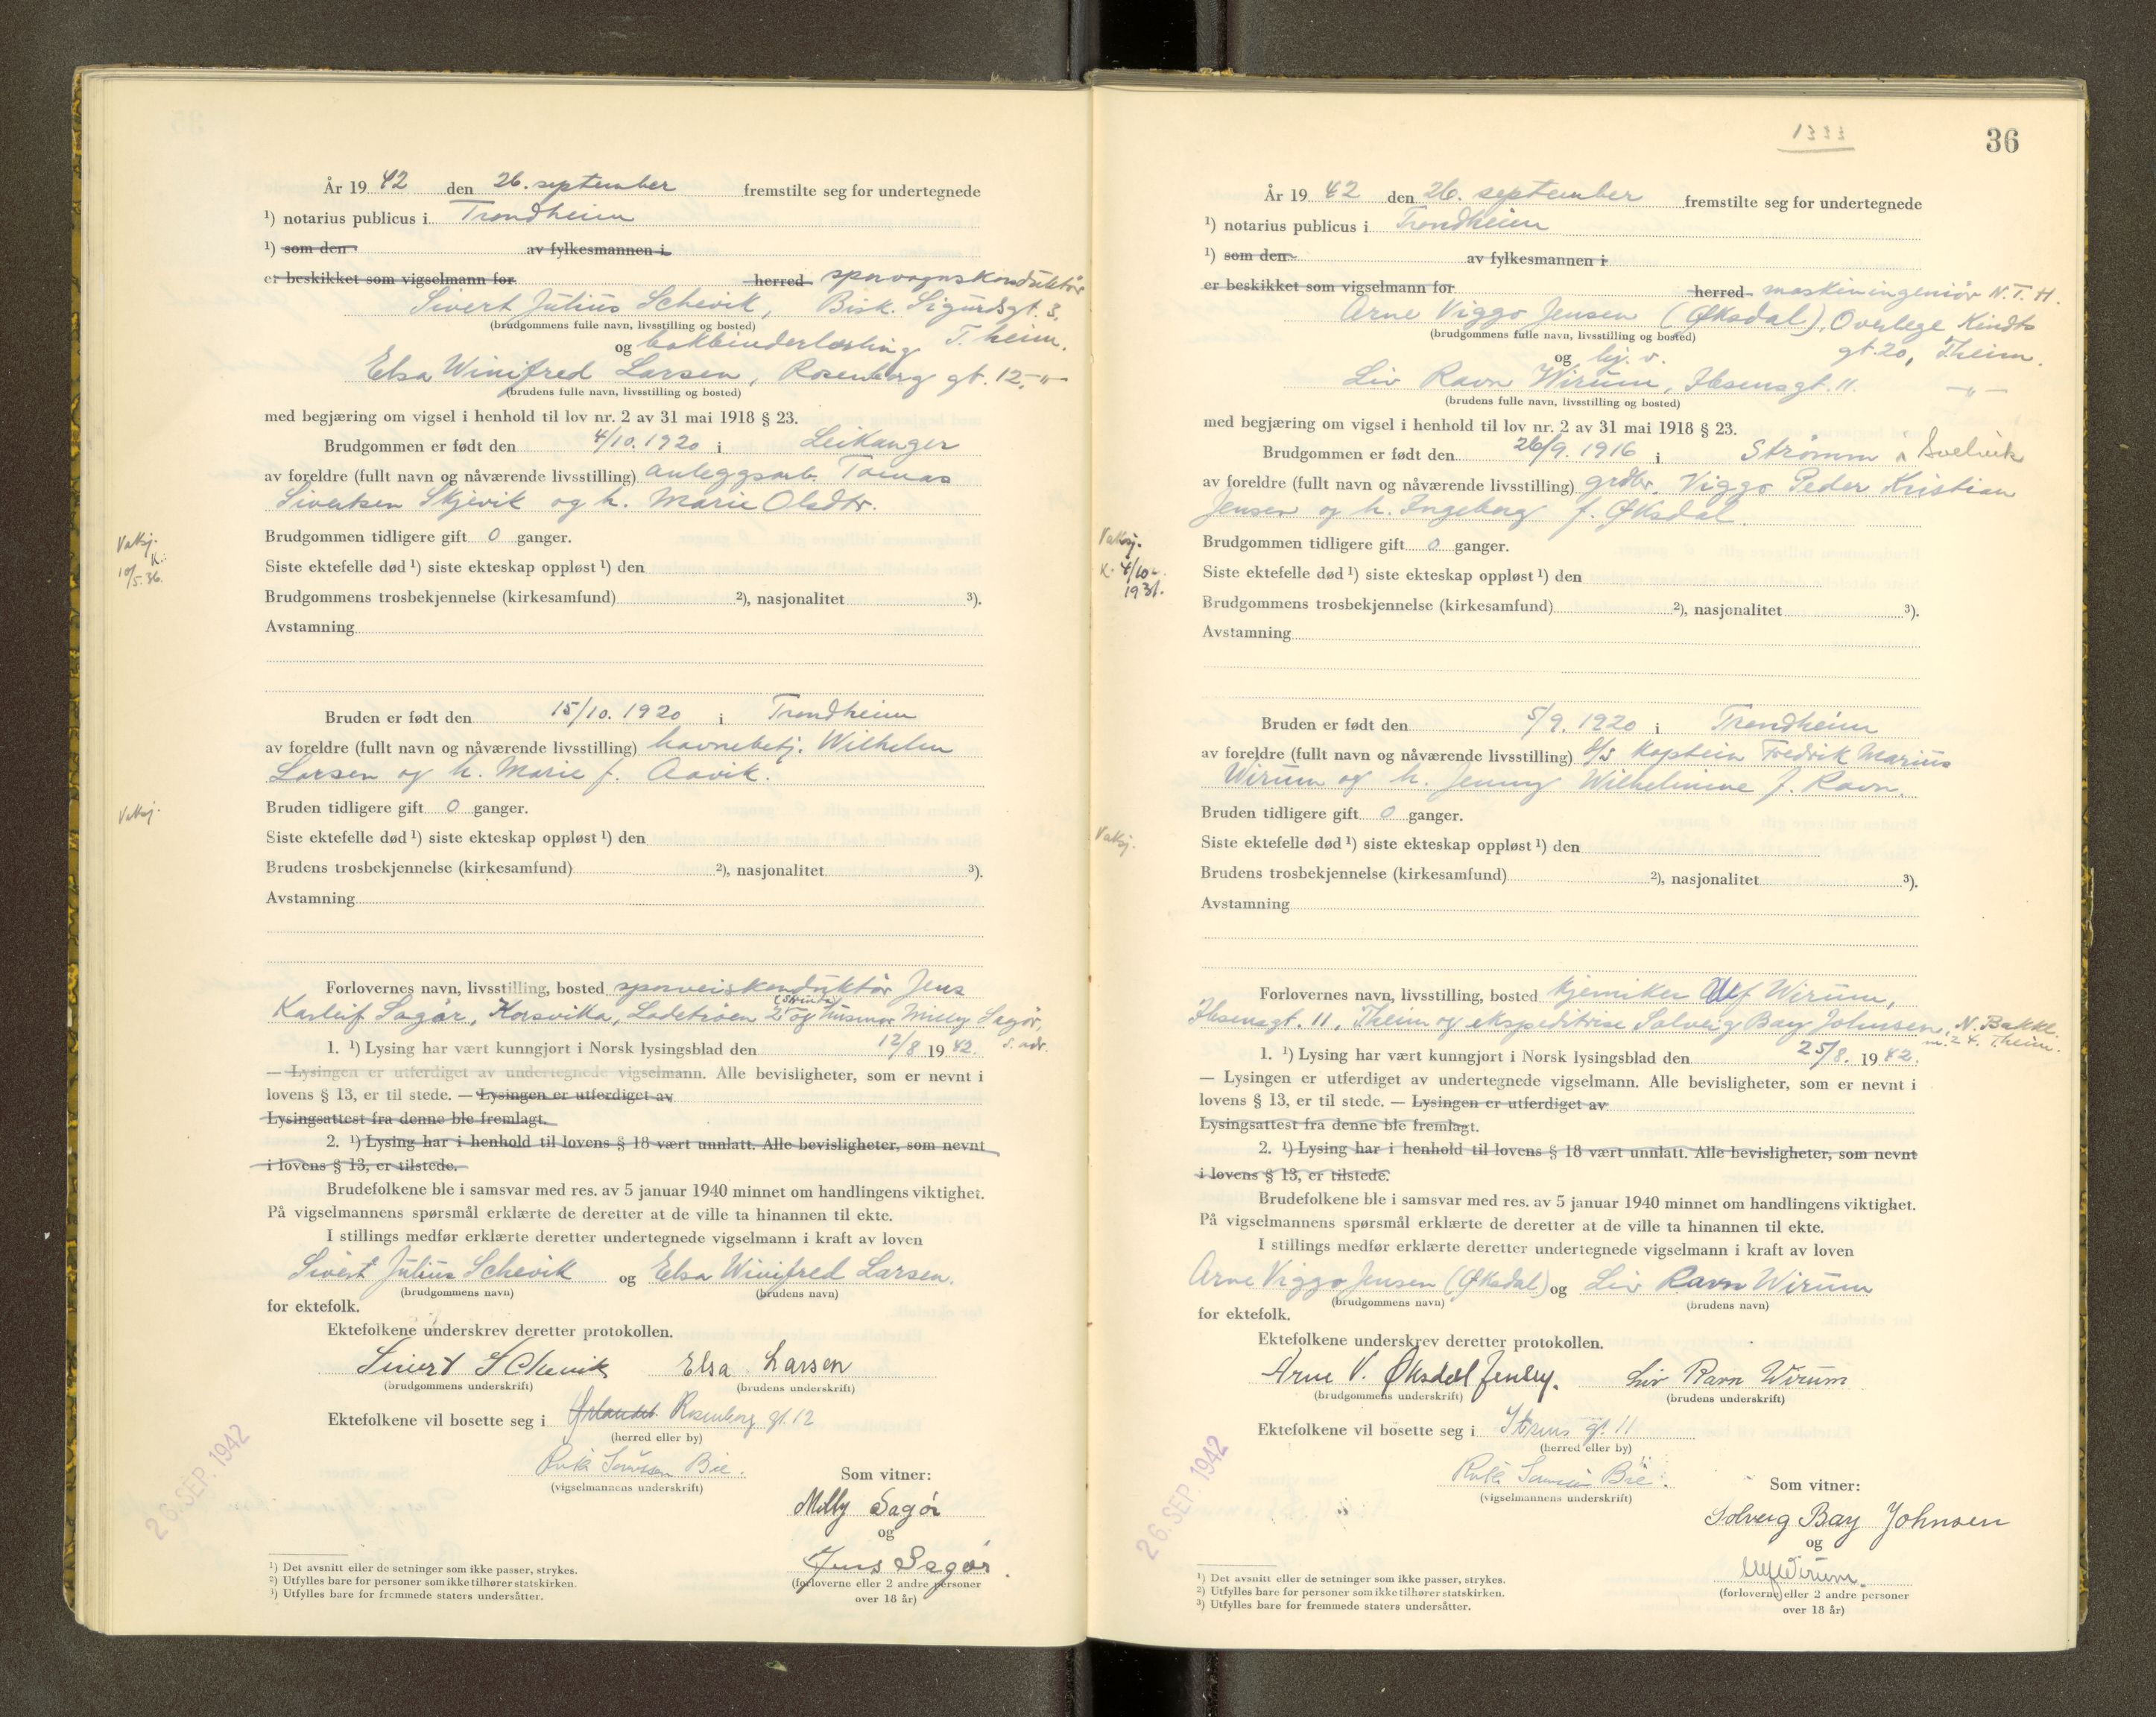 År 19 42 den 26. september fremstilte seg for undertegnede
¹) notarius publicus i Trondheim
¹) som den av fylkesmannen i
er beskikket som vigselmann for herred sporvognskonduktør
Sivert Julius Schevik, Bisk. Sigurdsgt. 3,
(brudgommens fulle navn, livsstilling og bosted)
og bokbinderlærling T.heim.
Elsa Winifred Larsen, Rosenborg gt. 12, -"-
(brudens fulle navn, livsstilling og bosted)
med begjæring om vigsel i henhold til lov nr. 2 av 31 mai 1918 § 23.
Brudgommen er født den 4/10. 1920 i Leikanger
av foreldre (fullt navn og nåværende livsstilling) anleggsarb. Tomas
Sivertsen Skjevik og h. Marie Olsdtr.
Vaksj.
K.:
10/5. 36.
Brudgommen tidligere gift 0 ganger.
Siste ektefelle død ¹) siste ekteskap oppløst ¹) den
Brudgommens trosbekjennelse (kirkesamfund) ²), nasjonalitet ³).
Avstamning
Bruden er født den 15/10. 1920 i Trondheim
av foreldre (fullt navn og nåværende livsstilling) havnebetj. Wilhelm
Larsen og h. Marie f. Aavik.
Vaksj.
Bruden tidligere gift 0 ganger.
Siste ektefelle død ¹) siste ekteskap oppløst ¹) den
Brudens trosbekjennelse (kirkesamfund) ²), nasjonalitet ³).
Avstamning
Forlovernes navn, livsstilling, bosted sporveiskonduktør Jens
(Strinda)
Karleif Sagør, Korsvika, Ladetrøen 2 og husmor Milly Sagør,
s. adr.
1. ¹) Lysing har vært kunngjort i Norsk lysingsblad den 12/8 19 42.
— Lysingen er utferdiget av undertegnede vigselmann. Alle bevisligheter, som er nevnt i
lovens § 13, er til stede. — Lysingen er utferdiget av
Lysingsattest fra denne ble fremlagt.
2. ¹) Lysing har i henhold til lovens § 18 vært unnlatt. Alle bevisligheter, som nevnt
i lovens § 13, er tilstede.
Brudefolkene ble i samsvar med res. av 5 januar 1940 minnet om handlingens viktighet.
På vigselmannens spørsmål erklærte de deretter at de ville ta hinannen til ekte.
I stillings medfør erklærte deretter undertegnede vigselmann i kraft av loven
Sivert Julius Schevik og Elsa Winifred Larsen.
(brudgommens navn) (brudens navn)
for ektefolk.
Ektefolkene underskrev deretter protokollen.
Sivert Schevik Elsa Larsen
(brudgommens underskrift) (brudens underskrift)
Ektefolkene vil bosette seg i Ørlandet Rosenborg gt. 12
(herred eller by)
(vigselmannens underskrift)
26. SEP. 1942
Som vitner:
Milly Sagør
og
Jens Sagør.
(forloverne eller 2 andre personer
over 18 år)
¹) Det avsnitt eller de setninger som ikke passer, strykes.
²) Utfylles bare for personer som ikke tilhører statskirken.
³) Utfylles bare for fremmede staters undersåtter.
1333
36
År 19 42 den 26. september fremstilte seg for undertegnede
¹) notarius publicus i Trondheim
¹) som den av fylkesmannen i
er beskikket som vigselmann for herred maskiningeniør N.T.H.
Arne Viggo Jensen (Øksdal), Overlege Kindts
(brudgommens fulle navn, livsstilling og bosted)
og hj. v. gt. 20, Theim.
Liv Ravn Wirum, Ibsensgt. 11. -"-
(brudens fulle navn, livsstilling og bosted)
med begjæring om vigsel i henhold til lov nr. 2 av 31 mai 1918 § 23.
Brudgommen er født den 26/9. 1916 i Strømm å Svelvik
av foreldre (fullt navn og nåværende livsstilling) grdbr. Viggo Peder Kristian
Jensen og h. Ingeborg f. Øksdal.
Vaksj.
K. 4/10-
1931.
Brudgommen tidligere gift 0 ganger.
Siste ektefelle død ¹) siste ekteskap oppløst ¹) den
Brudgommens trosbekjennelse (kirkesamfund) ²), nasjonalitet ³).
Avstamning
Bruden er født den 5/9. 1920 i Trondheim
av foreldre (fullt navn og nåværende livsstilling) d/s kaptein Fredrik Marius
Wirum og h. Jenny Wilhelmine f. Ravn.
Vaksj.
Bruden tidligere gift 0 ganger.
Siste ektefelle død ¹) siste ekteskap oppløst ¹) den
Brudens trosbekjennelse (kirkesamfund) ²), nasjonalitet ³).
Avstamning
Forlovernes navn, livsstilling, bosted kjemiker Ulf Wirum,
Ibsensgt. 11, Theim og ekspeditrise Solveig Bay Johnsen, N. Bakkl.
nr. 24. Theim.
1. ¹) Lysing har vært kunngjort i Norsk lysingsblad den 25/8. 19 42.
— Lysingen er utferdiget av undertegnede vigselmann. Alle bevisligheter, som er nevnt i
lovens § 13, er til stede. — Lysingen er utferdiget av
Lysingsattest fra denne ble fremlagt.
2. ¹) Lysing har i henhold til lovens § 18 vært unnlatt. Alle bevisligheter, som nevnt
i lovens § 13, er tilstede.
Brudefolkene ble i samsvar med res. av 5 januar 1940 minnet om handlingens viktighet.
På vigselmannens spørsmål erklærte de deretter at de ville ta hinannen til ekte.
I stillings medfør erklærte deretter undertegnede vigselmann i kraft av loven
Arne Viggo Jensen (Øksdal) og Liv Ravn Wirum
(brudgommens navn) (brudens navn)
for ektefolk.
Ektefolkene underskrev deretter protokollen.
Arne V. Øksdal Jensen. Liv Ravn Wirum
(brudgommens underskrift) (brudens underskrift)
Ektefolkene vil bosette seg i Ibsens gt. 11
(herred eller by)
(vigselmannens underskrift)
26. SEP. 1942
Som vitner:
Solveig Bay Johnsen
og
Ulf Wirum.
(forloverne eller 2 andre personer
over 18 år)
¹) Det avsnitt eller de setninger som ikke passer, strykes.
²) Utfylles bare for personer som ikke tilhører statskirken.
³) Utfylles bare for fremmede staters undersåtter.